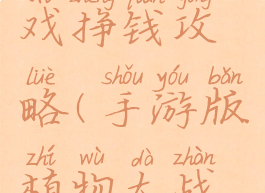 xì zhèng qián gōng
戏挣钱攻
lüè shǒu yóu bǎn
略(手游版
zhí wù dà zhàn
植物大战